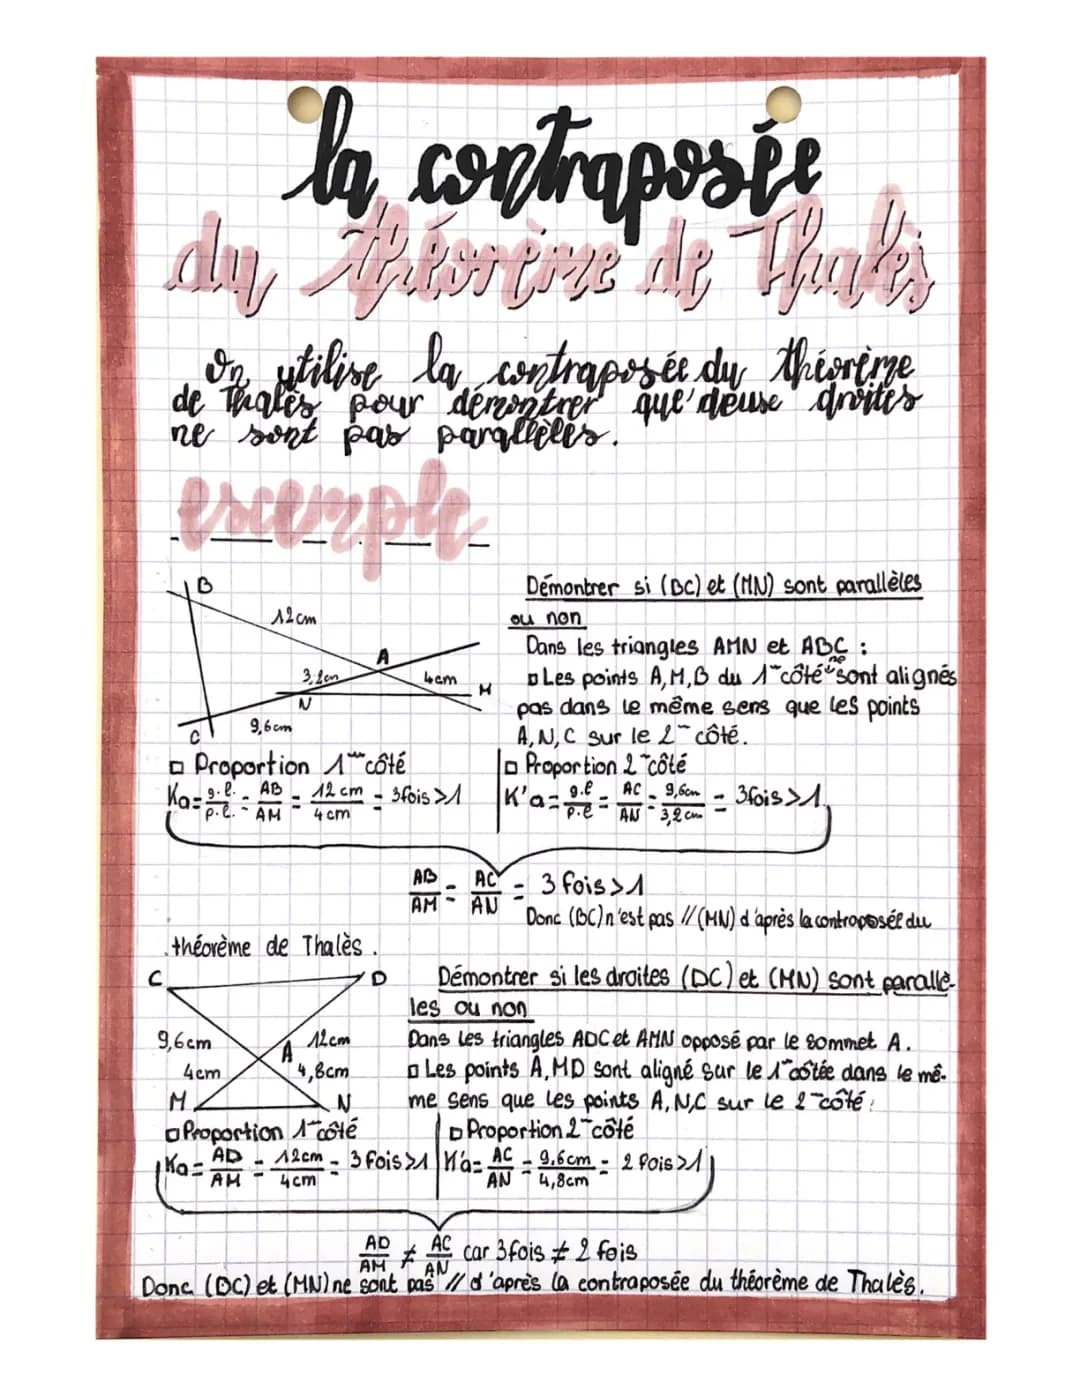 la contraposée
du théorème de Thalès
On utilise la contraposée du théorème
de Thalès pour démontrer que deuxe droites
ne sont pas parallèles.
exemple
B
12cm
A
3,2cm
4cm
M
N
9,6cm
C
Démontrer si (BC) et (MN) sont parallèles
ou non
Dans les triangles AMN et ABC :
▫ Les points A,M,B du 1er côté ne sont alignés
pas dans le même sens que les points
A,N,C sur le 2e côté.
▫ Proportion 1er côté
Ka = g.l. / p.l. = AB / AM = 12cm / 4cm = 3fois>1
▫ Proportion 2e côté
K'a = g.l / p.l = AC / AN = 9,6cm / 3,2cm = 3fois>1
AB / AM = AC / AN = 3 fois>1
Donc (BC) n'est pas // (MN) d'après la contraposée du
théorème de Thalès.
C
D
9,6cm
12cm
A
4cm
4,8cm
M
N
Démontrer si les droites (DC) et (MN) sont parallè-
les ou non
Dans les triangles ADC et AMN opposé par le sommet A.
▫ Les points A,MD sont aligné sur le 1er côtée dans le mê-
me sens que les points A,N,C sur le 2e côté.
▫ Proportion 1er côté
Ka = AD / AM = 12cm / 4cm = 3fois>1
▫ Proportion 2e côté
K'a = AC / AN = 9,6cm / 4,8cm = 2 fois>1
AD / AM ≠ AC / AN car 3fois ≠ 2 fois
Donc (DC) et (MN) ne sont pas // d'après la contraposée du théorème de Thalès.